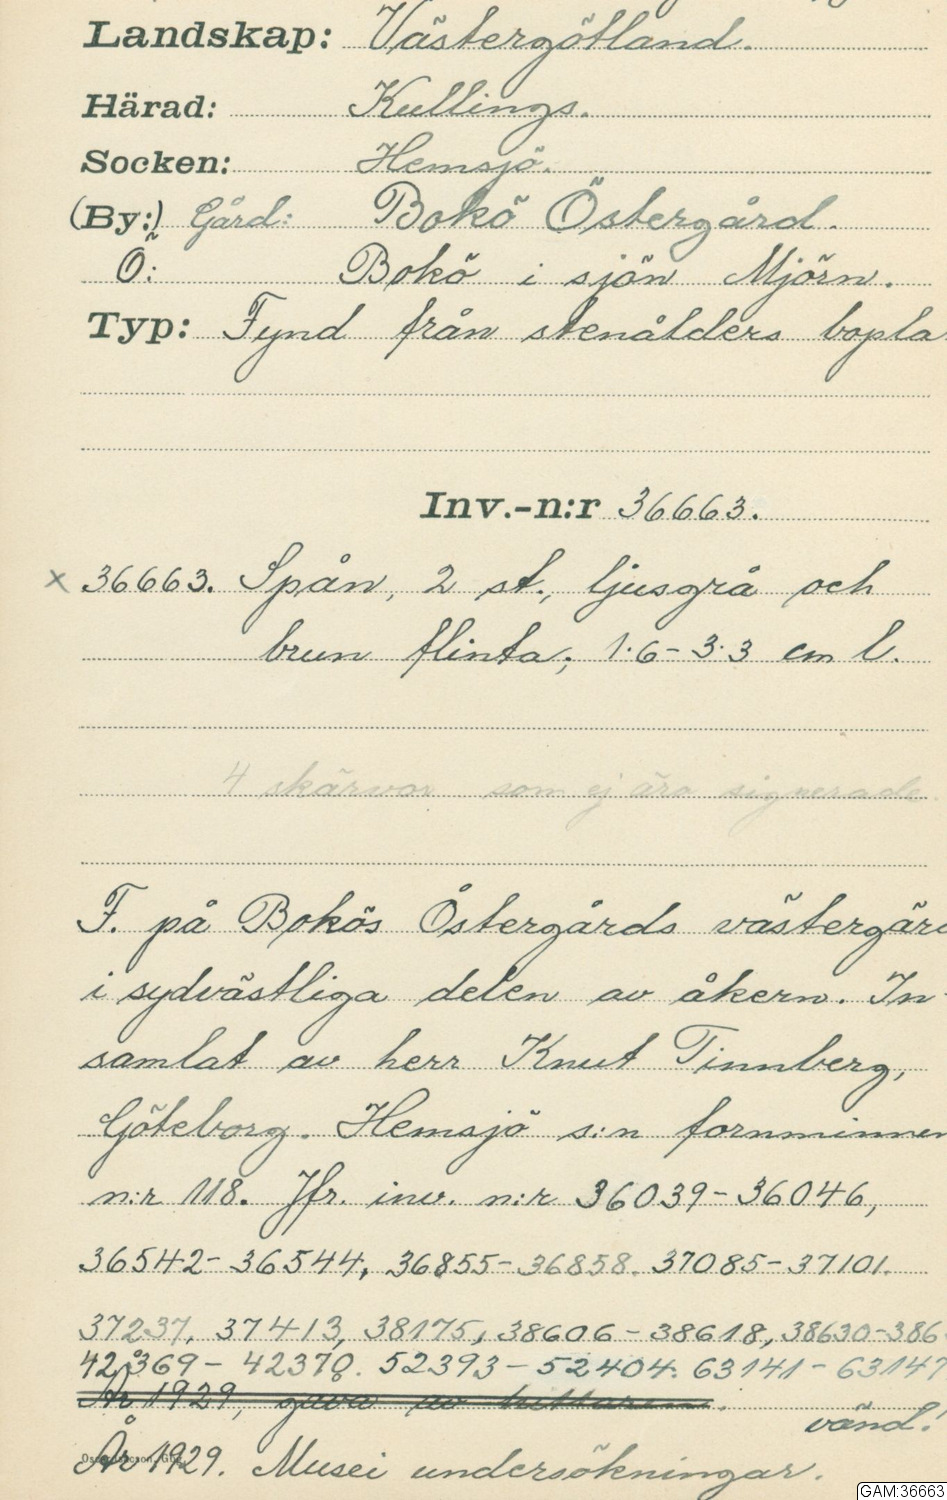 Landskap: Västergötland.
Härad: Kullings.
Socken: Hemsjö.
(By:) Gård: Bokö Östergård.
Ö: Bokö i sjön Mjörn.
Typ: Fynd från stenålders bopla
Inv.-n:r 36663.
x 36663. Spån, 2 st., ljusgrå och
brun flinta; 1.6-3.3 cm l.
4 skärvor som ej äro signerade.
F. på Bokös Östergårds västergär
i sydvästliga delen av åkern. In-
samlat av herr Knut Tinnberg,
Göteborg. Hemsjö s:n fornminnen
n:r 118. Jfr. inv. n:r 36039-36046,
36542-36544, 36855-36858. 37085-37101.
37237, 37413, 38175, 38606-38618, 38630-386
42369-42370. 52393-52404. 63141-63147
År 1929, gåva av hittaren.
vänd!
År 1929. Musei undersökningar.
GAM:36663